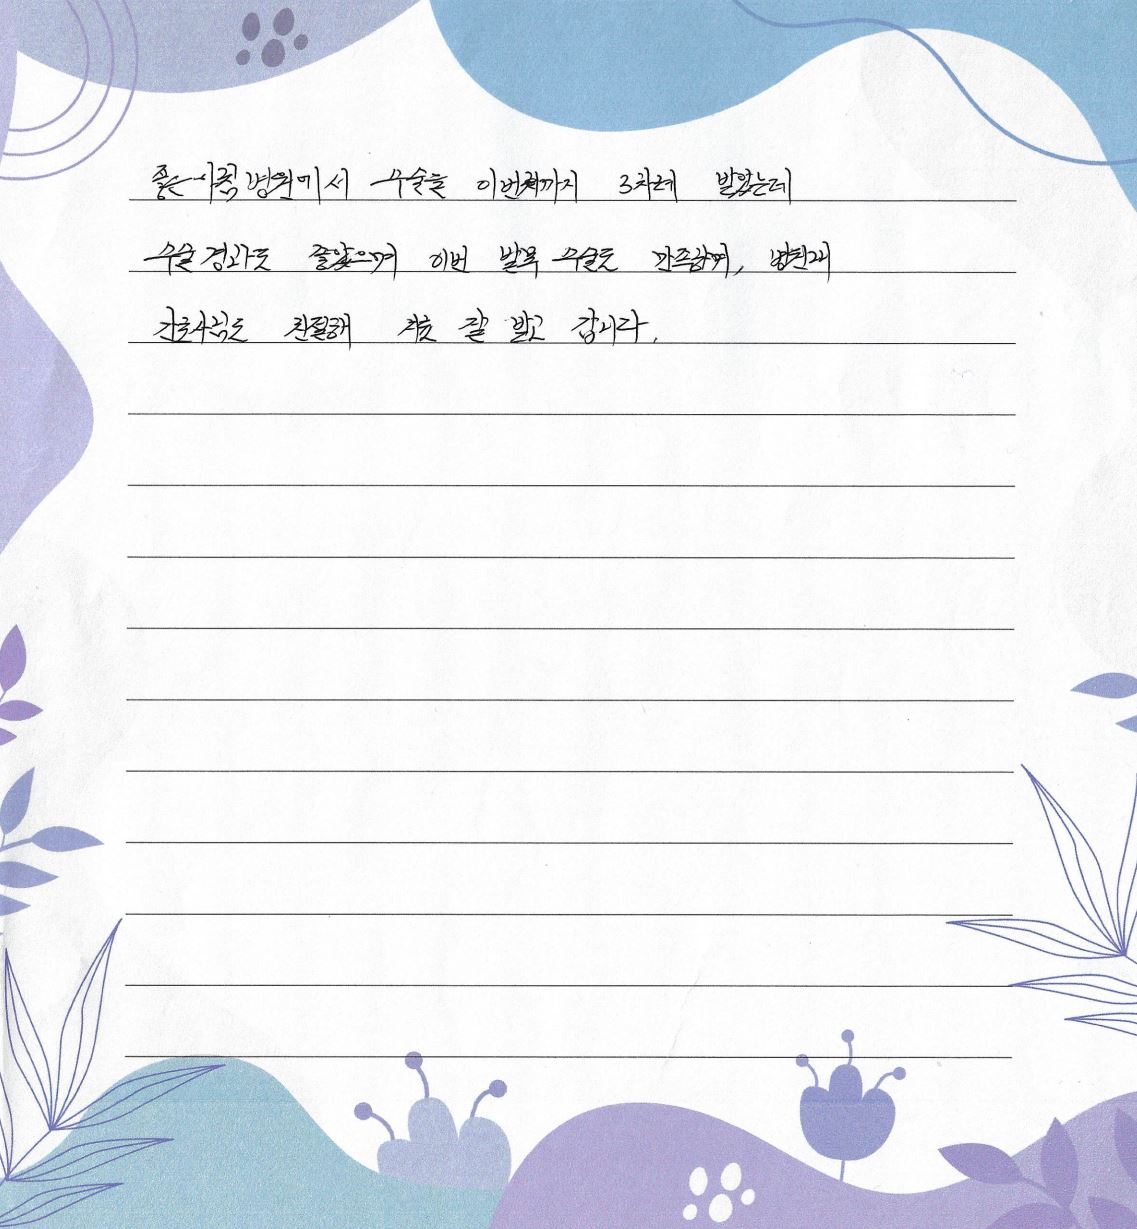 좋은아침병원에서 수술을 이번까지 3차례 받았는데
수술 경과도 좋았으며 이번 발목 수술도 만족하며,
간호사님도 친절해 치료 잘 받고 갑니다.